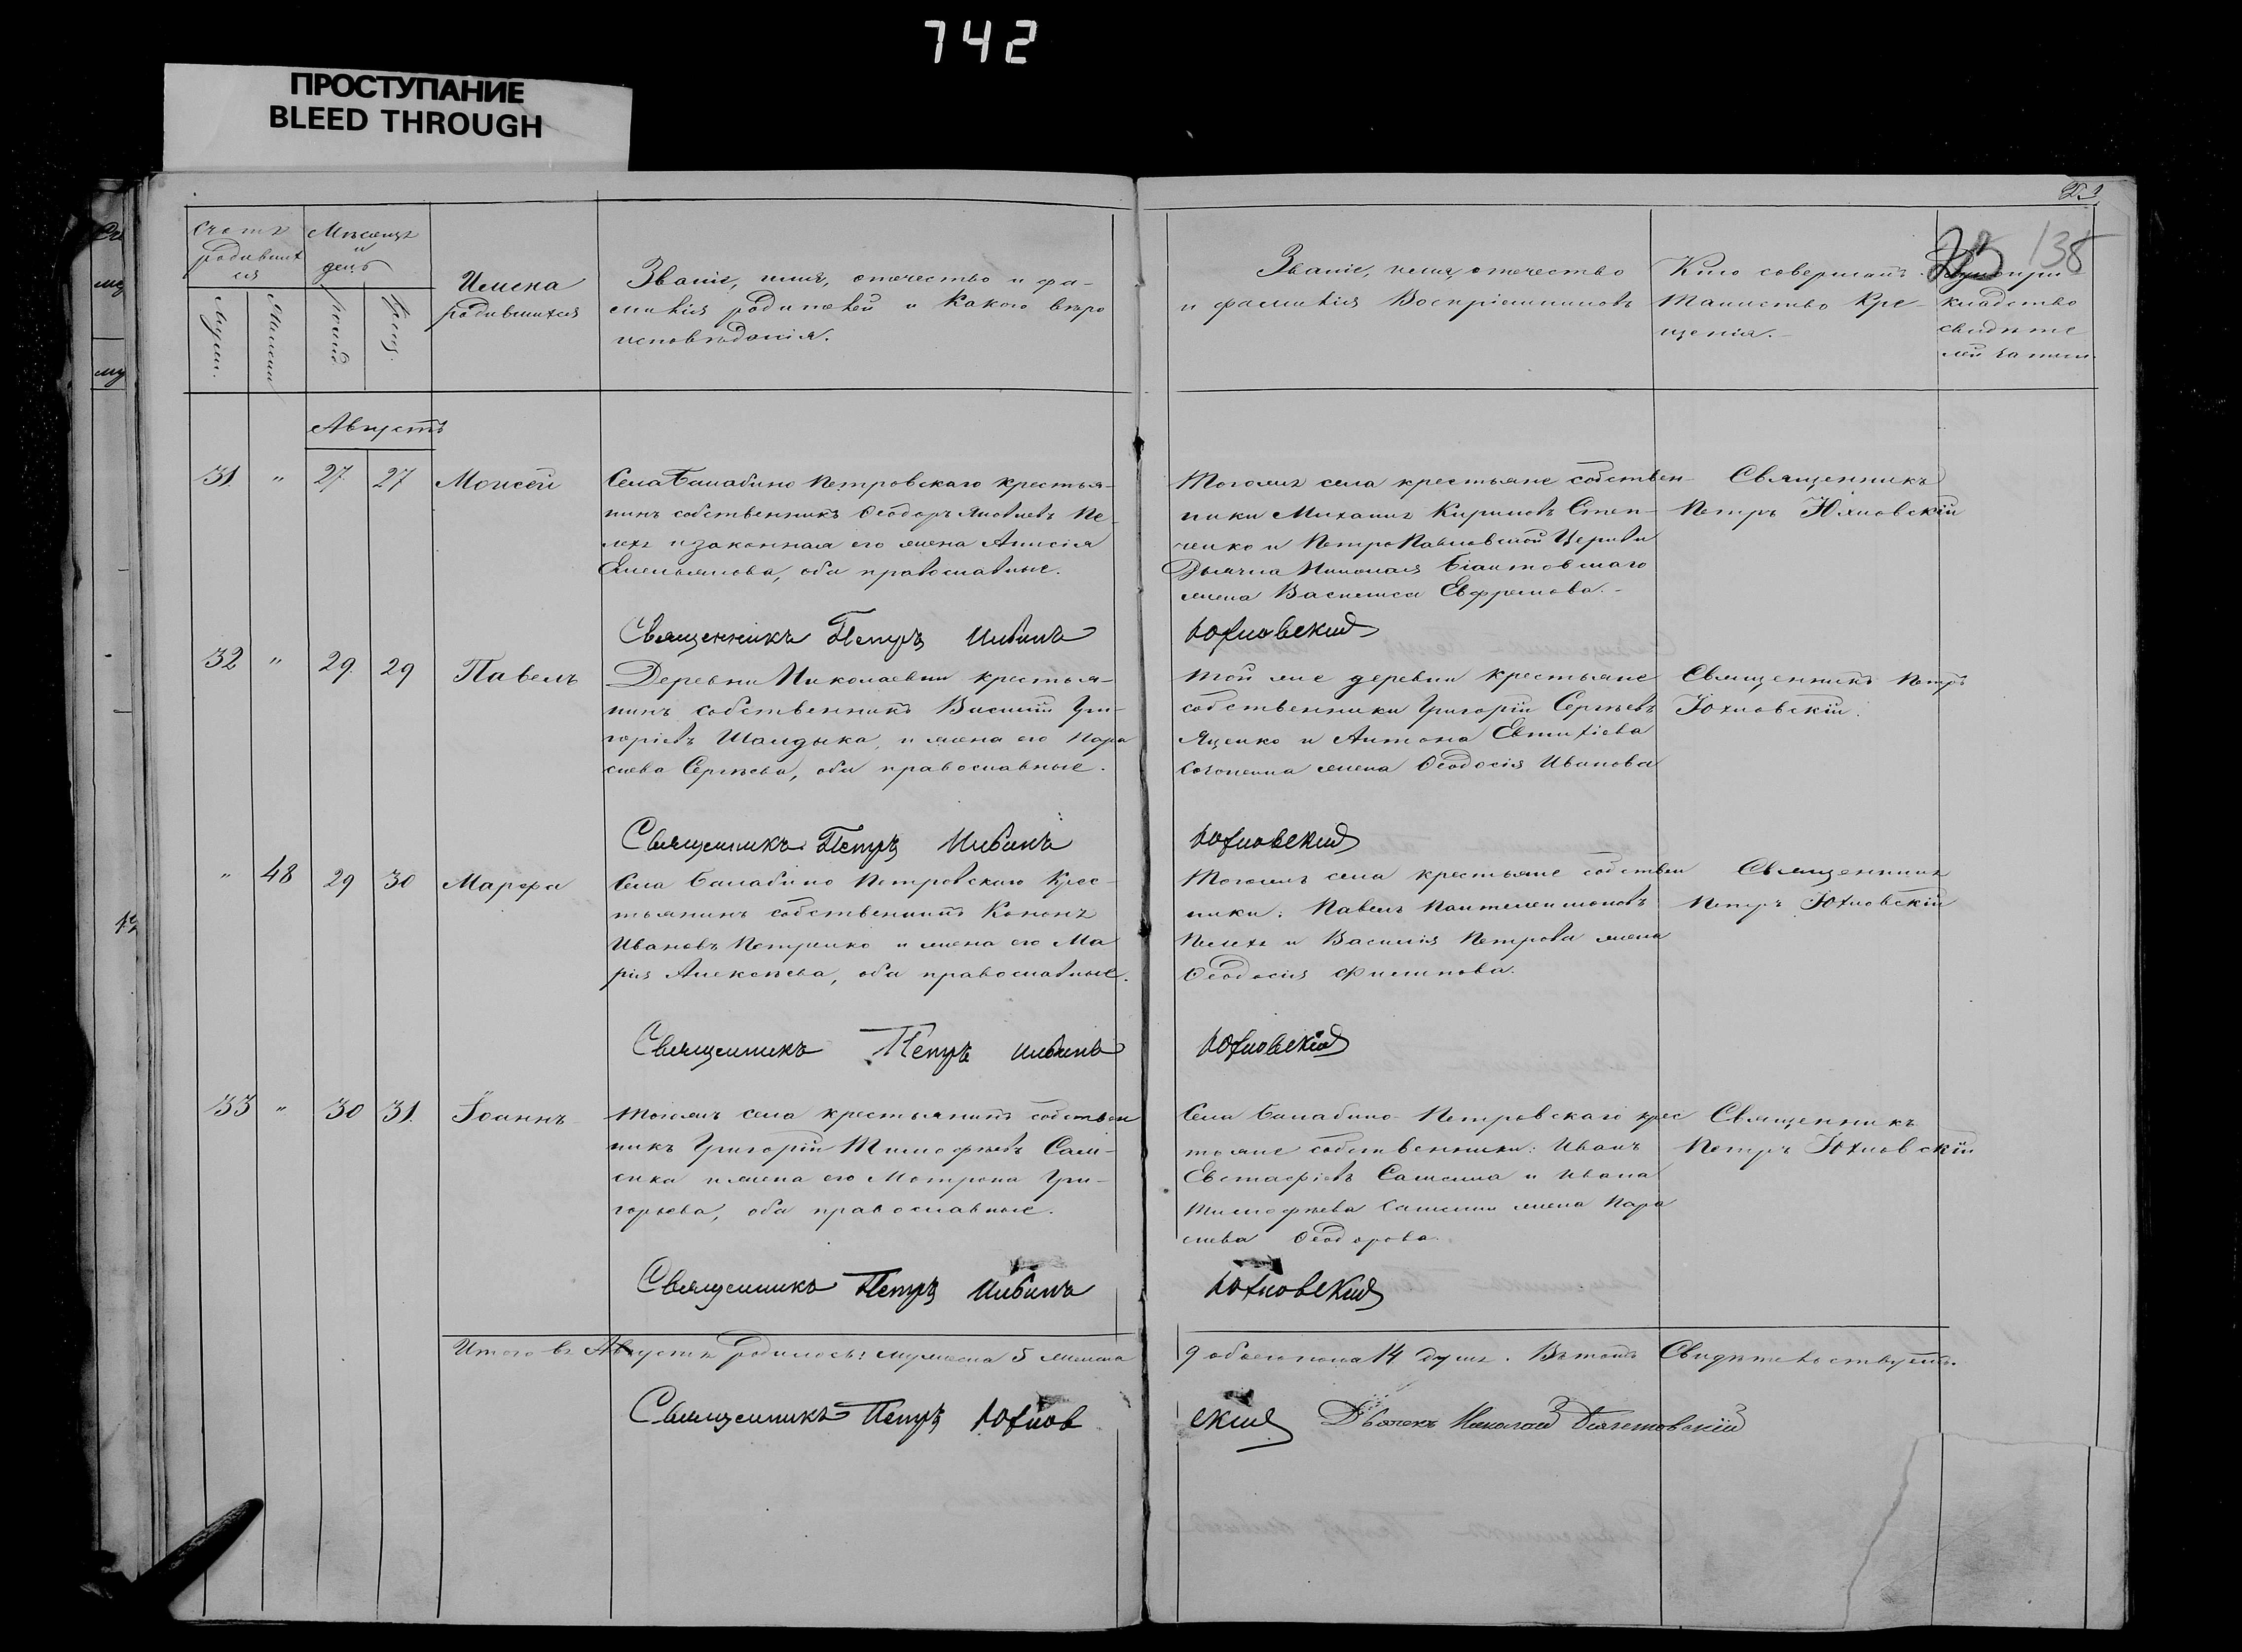 742
ПРОСТУПАНИЕ
BLEED THROUGH
138
Счетъ родившихся
Мѣсяцъ и день
Имена родившихся
Званіе, имя, отечество и фа-
милія родителей и какого вѣро
исповѣданія.
Званіе, имя, отечество
и фамилія Воспріемниковъ
Кто совершалъ
таинство Кре-
щенія.
Рукопри
кладство
свидѣте
лей
Августъ
31. " 27 27 Моисей
Села Балабино Петровскаго крестья-
нинъ собственникъ Ѳеодоръ Яковлевъ Пе-
лехъ и законная его жена Анисія
Емельянова, оба православные.
Тогожъ села крестьяне собствен-
ники Михаилъ Кириловъ Степ-
ченко и Петро Павловской Церкви
Дьячка Николая
жена Василиса Ефремова.-
Священникъ
Петръ Юхновскій
Священникъ Петръ Юхновскій
32 " 29. 29 Павелъ
Деревни Николаевки крестья-
нинъ собственникъ Василій Гри-
горіевъ Шалдыка, и жена его Пара
скева Сергѣева, оба православные.
Той же деревни крестьяне
собственники Григорій Сергѣевъ
Яценко и Антона Евтихіева
жена Ѳеодосія Иванова
Священникъ Петръ
Юхновскій.
Священникъ Петръ Юхновскій
" 48 29 30 Марфа
Села Балабино Петровскаго Крес-
тьянинъ собственникъ Кононъ
Ивановъ Петренко и жена его Ма
рія Алексѣева, оба православные.
Тогожъ села крестьяне собствен
ники: Павелъ Пантелеимоновъ
Пелехъ и Василія Петрова жена
Ѳеодосія Филипова.
Священникъ
Петръ Юхновскій
Священникъ Петръ Юхновскій
33 " 30 31. Іоаннъ
Тогожъ села крестьянинъ собствен
никъ Григорій Тимофѣевъ Сам-
сика и жена его Матрона Гри-
горьева, оба православные.
Села Балабино-Петровскаго крес
тьяне собственники: Иванъ
Евстафіевъ и Ивана
Тимофѣева жена Пара
скева Ѳеодорова.
Священникъ
Петръ Юхновскій
Священникъ Петръ Юхновскій
Итого въ Августѣ родилось: мужеска 5 женска
9 обоего пола 14 душъ. Въ томъ Свидѣтельствуемъ.
Священникъ Петръ Юхнов
скій Дьячекъ Николай